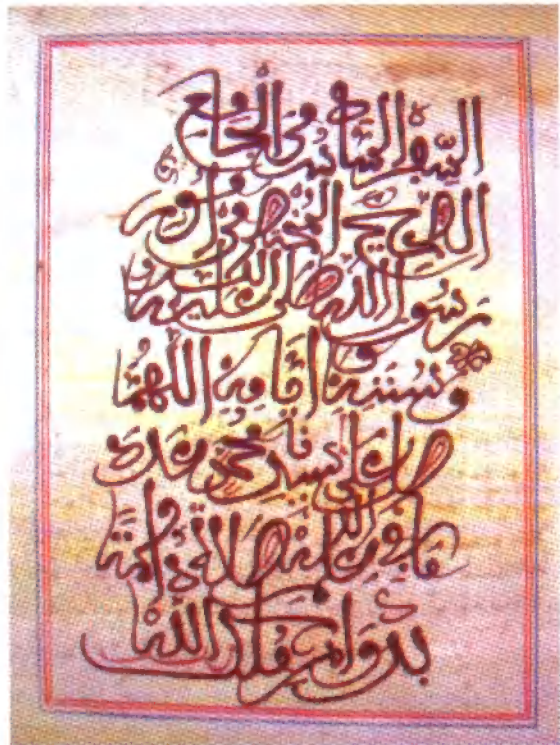 السفر السادس من الجامع
الصحيح المختصر من امور
رسول الله صلى الله عليه وسلم
وسننه وايامه اللهم
صل على سيدنا محمد عدد
ما في علم الله صلاة دائمة
بدوام ملك الله